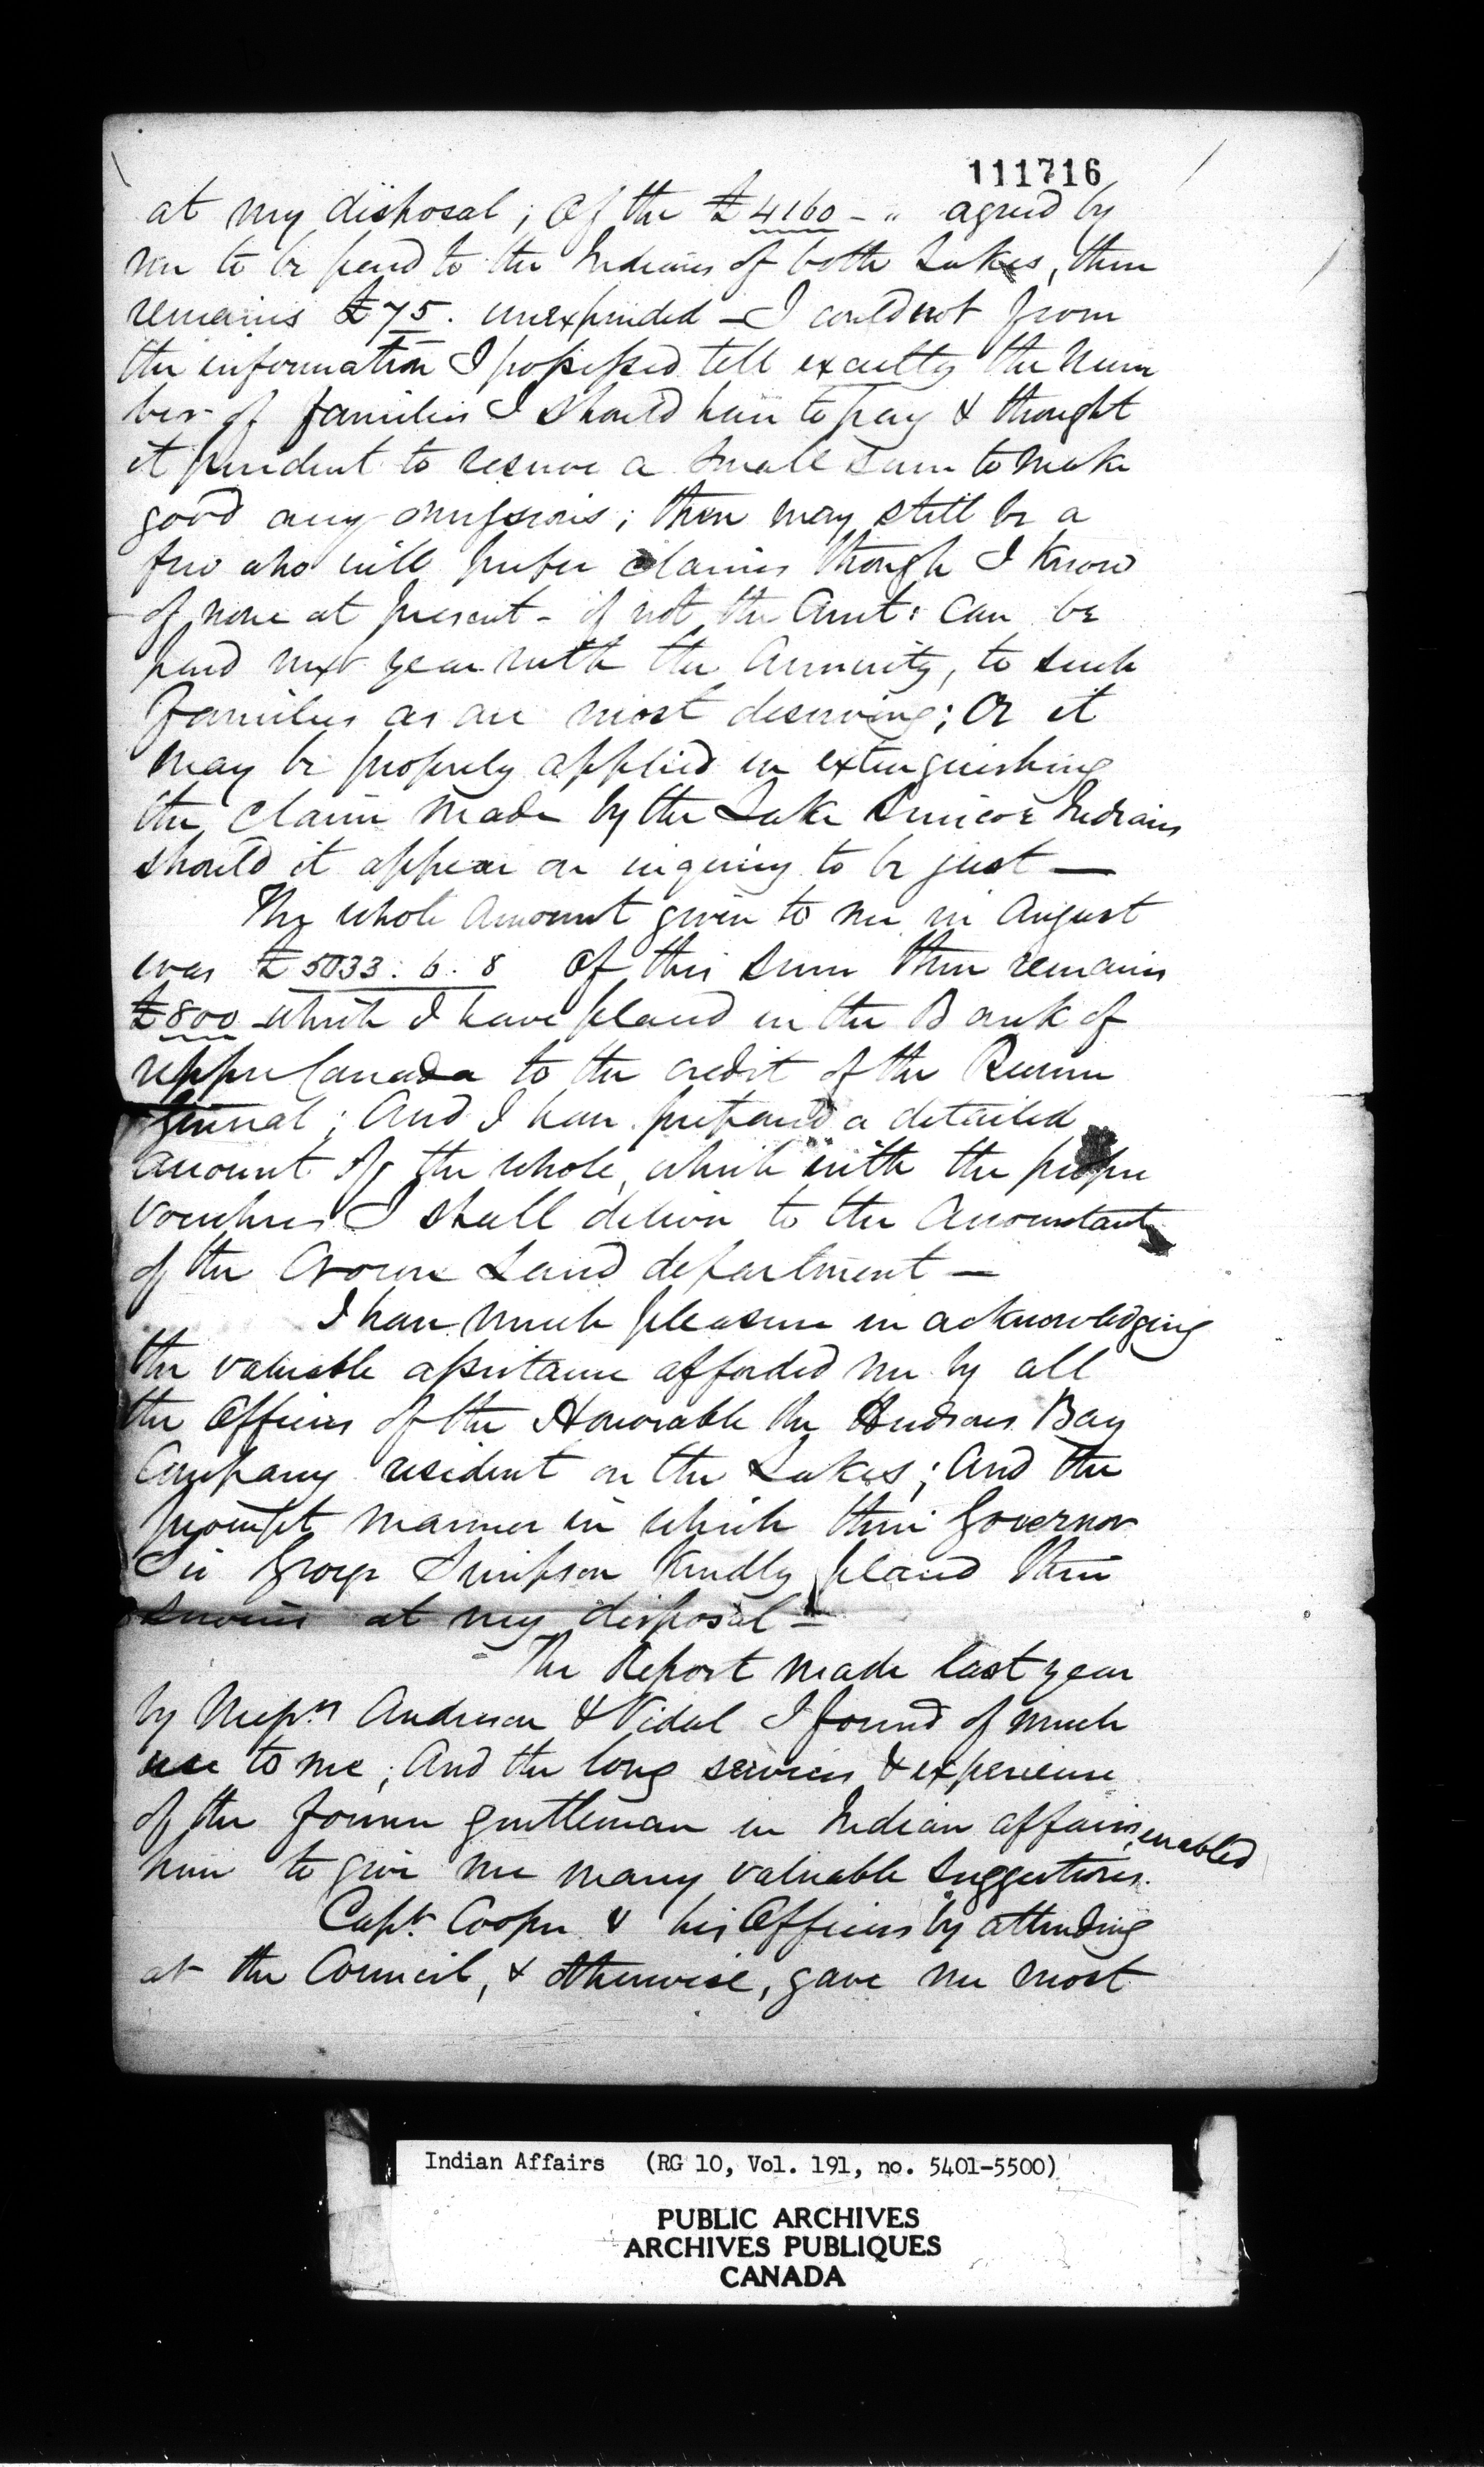 111716
at my disposal; Of the £4160 - " agreed by
me to be paid to the Indians of both Lakes, there
remains £75. unexpended - I could not from
the information I possessed tell exactly the num
ber of families I should have to pay & thought
it prudent to reserve a small sum to make
good any omissions; there may still be a
few who will prefer claims though I know
of none at present - if not the Amt: can be
paid next year with the Annuity, to such
families as are most deserving; Or it
may be properly applied in extinguishing
the claim made by the Lake Simcoe Indians
should it appear on inquiry to be just —
The whole amount given to me in August
was £5033. 6. 8 Of this sum there remains
£800 which I have placed in the Bank of
upper Canada to the credit of the Receiver
General; And I have prepared a detailed
account of the whole, which with the proper
vouchers I shall deliver to the Accountant
of the Crown Land department —
I have much pleasure in acknowledging
the valuable assistance afforded me by all
the Officers of the Honorable the Hudsons Bay
Company resident on the Lakes; And the
prompt manner in which their Governor
Sir George Simpson kindly placed their
services at my disposal —
The Report made last year
by Messrs Anderson & Vidal I found of much
use to me; And the long services & experience
of the former gentleman in Indian affairs, enabled
him to give me many valuable suggestions.
Capt. Cooper & his Officers by attending
at the Council, & otherwise, gave me most
Indian Affairs (RG 10, Vol. 191, no. 5401-5500)
PUBLIC ARCHIVES
ARCHIVES PUBLIQUES
CANADA